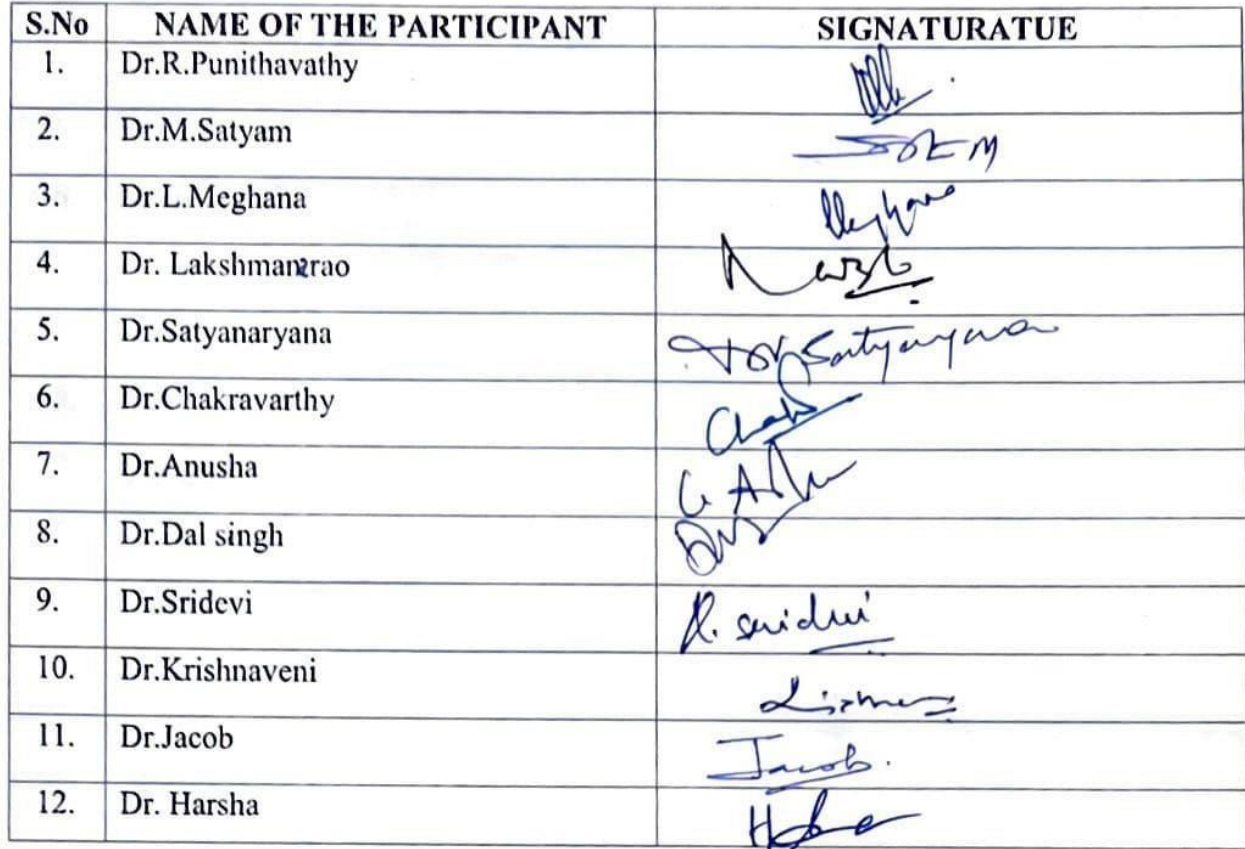 S.No NAME OF THE PARTICIPANT SIGNATURATUE
1. Dr.R.Punithavathy
2. Dr.M.Satyam
3. Dr.L.Meghana
4. Dr. Lakshmanarao
5. Dr.Satyanaryana
6. Dr.Chakravarthy
7. Dr.Anusha
8. Dr.Dal singh
9. Dr.Sridevi
10. Dr.Krishnaveni
11. Dr.Jacob Jacob.
12. Dr. Harsha